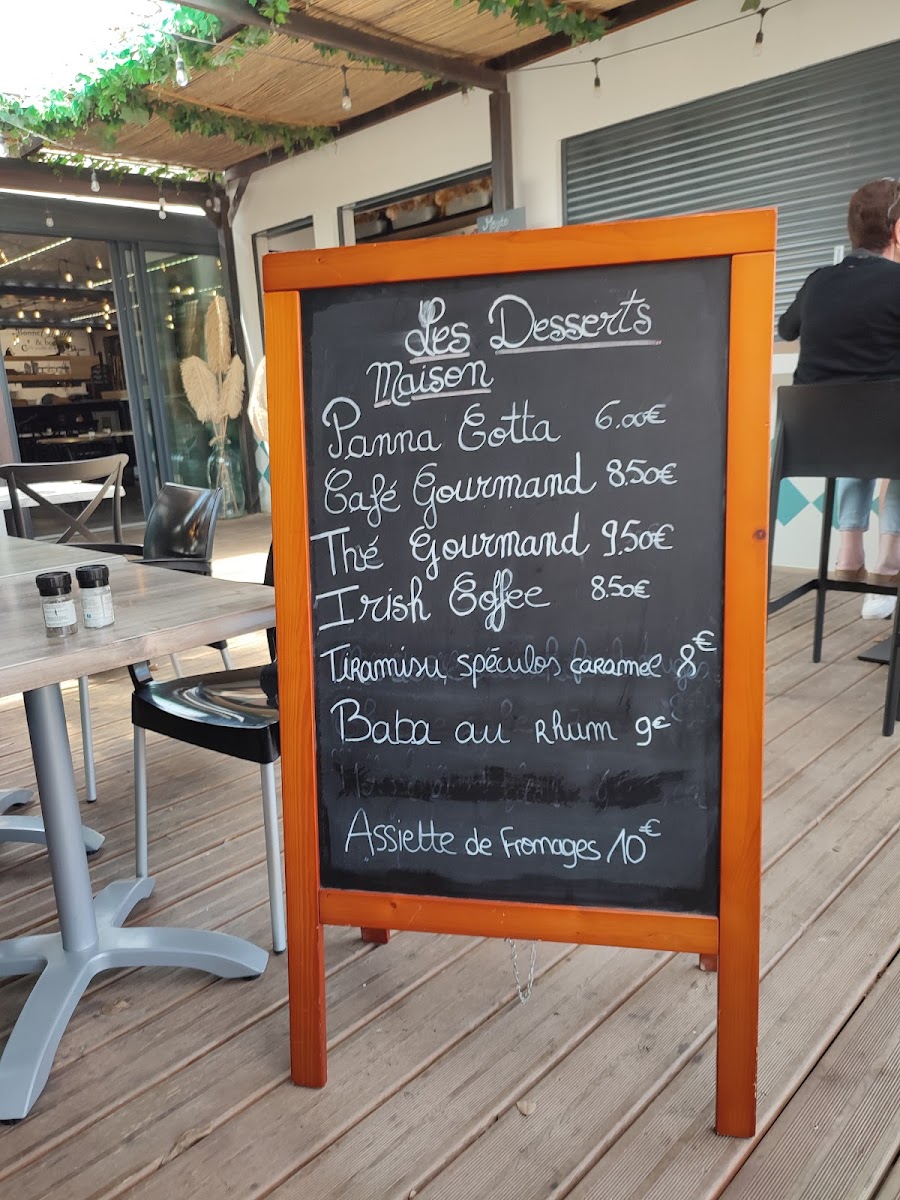 Les Desserts
Maison
Panna Cotta 6.00€
Café Gourmand 8.50€
Thé Gourmand 9.50€
Irish Coffee 8.50€
Tiramisu spéculos caramel 8€
Baba au Rhum 9€
Assiette de Fromages 10€